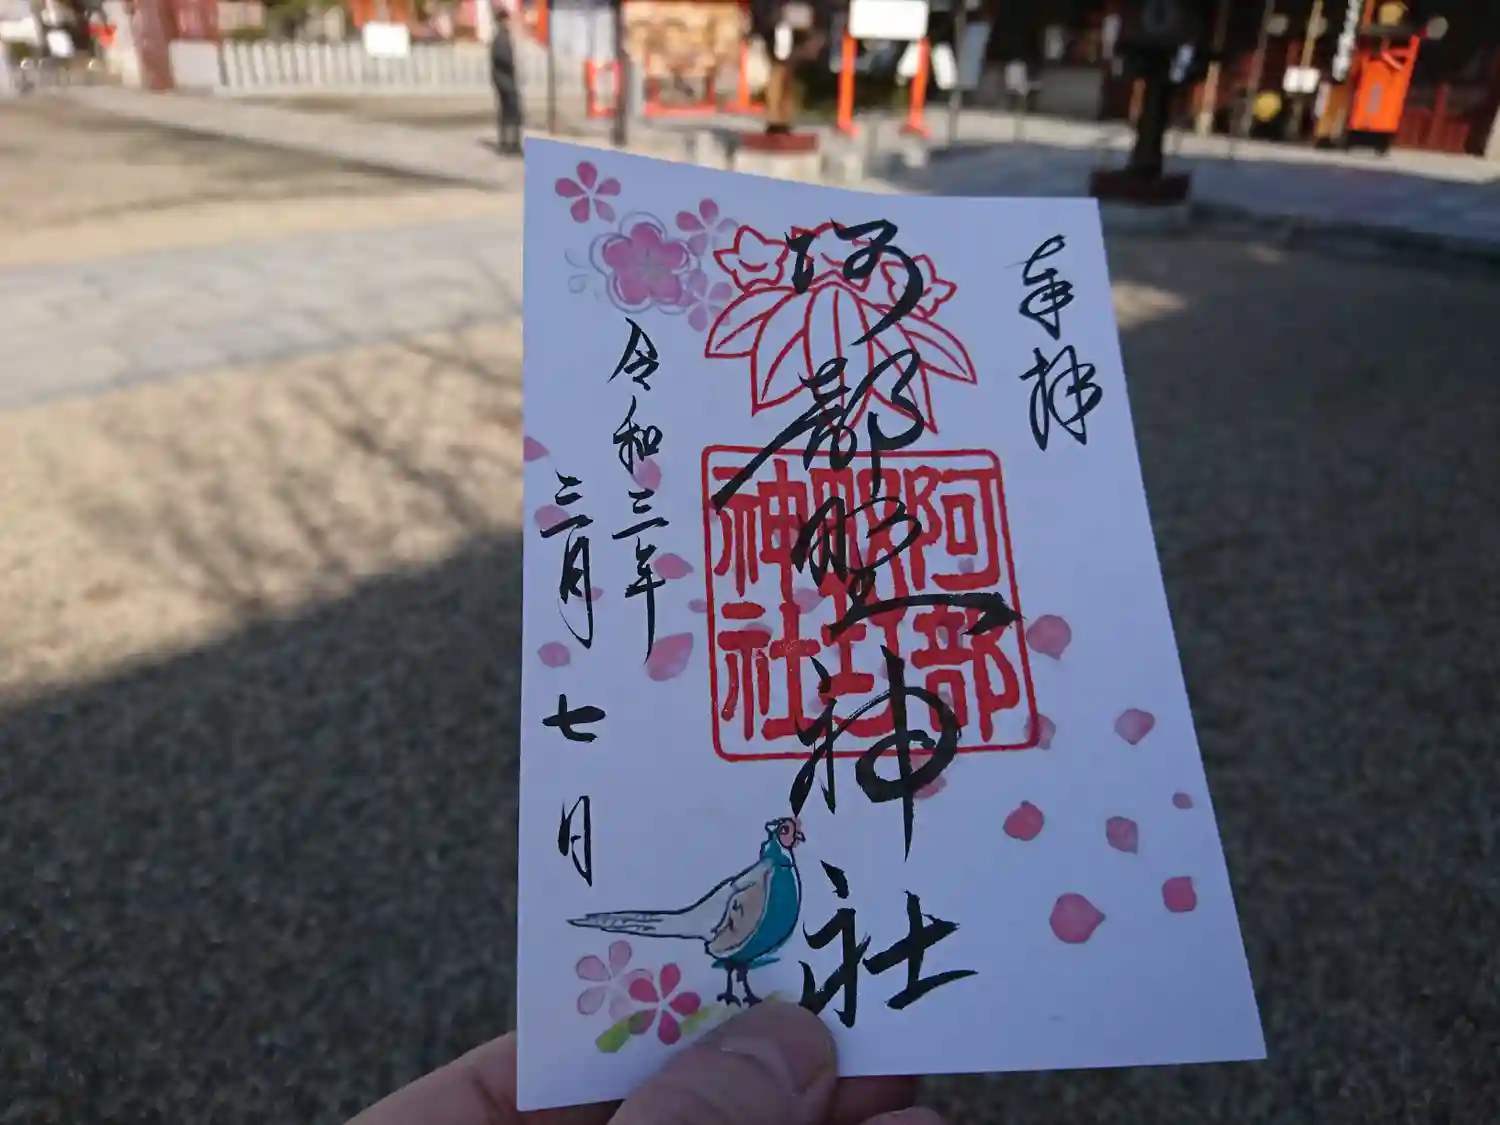 奉拝
阿部野神社
阿部
野
神社
令和三年
三月七日